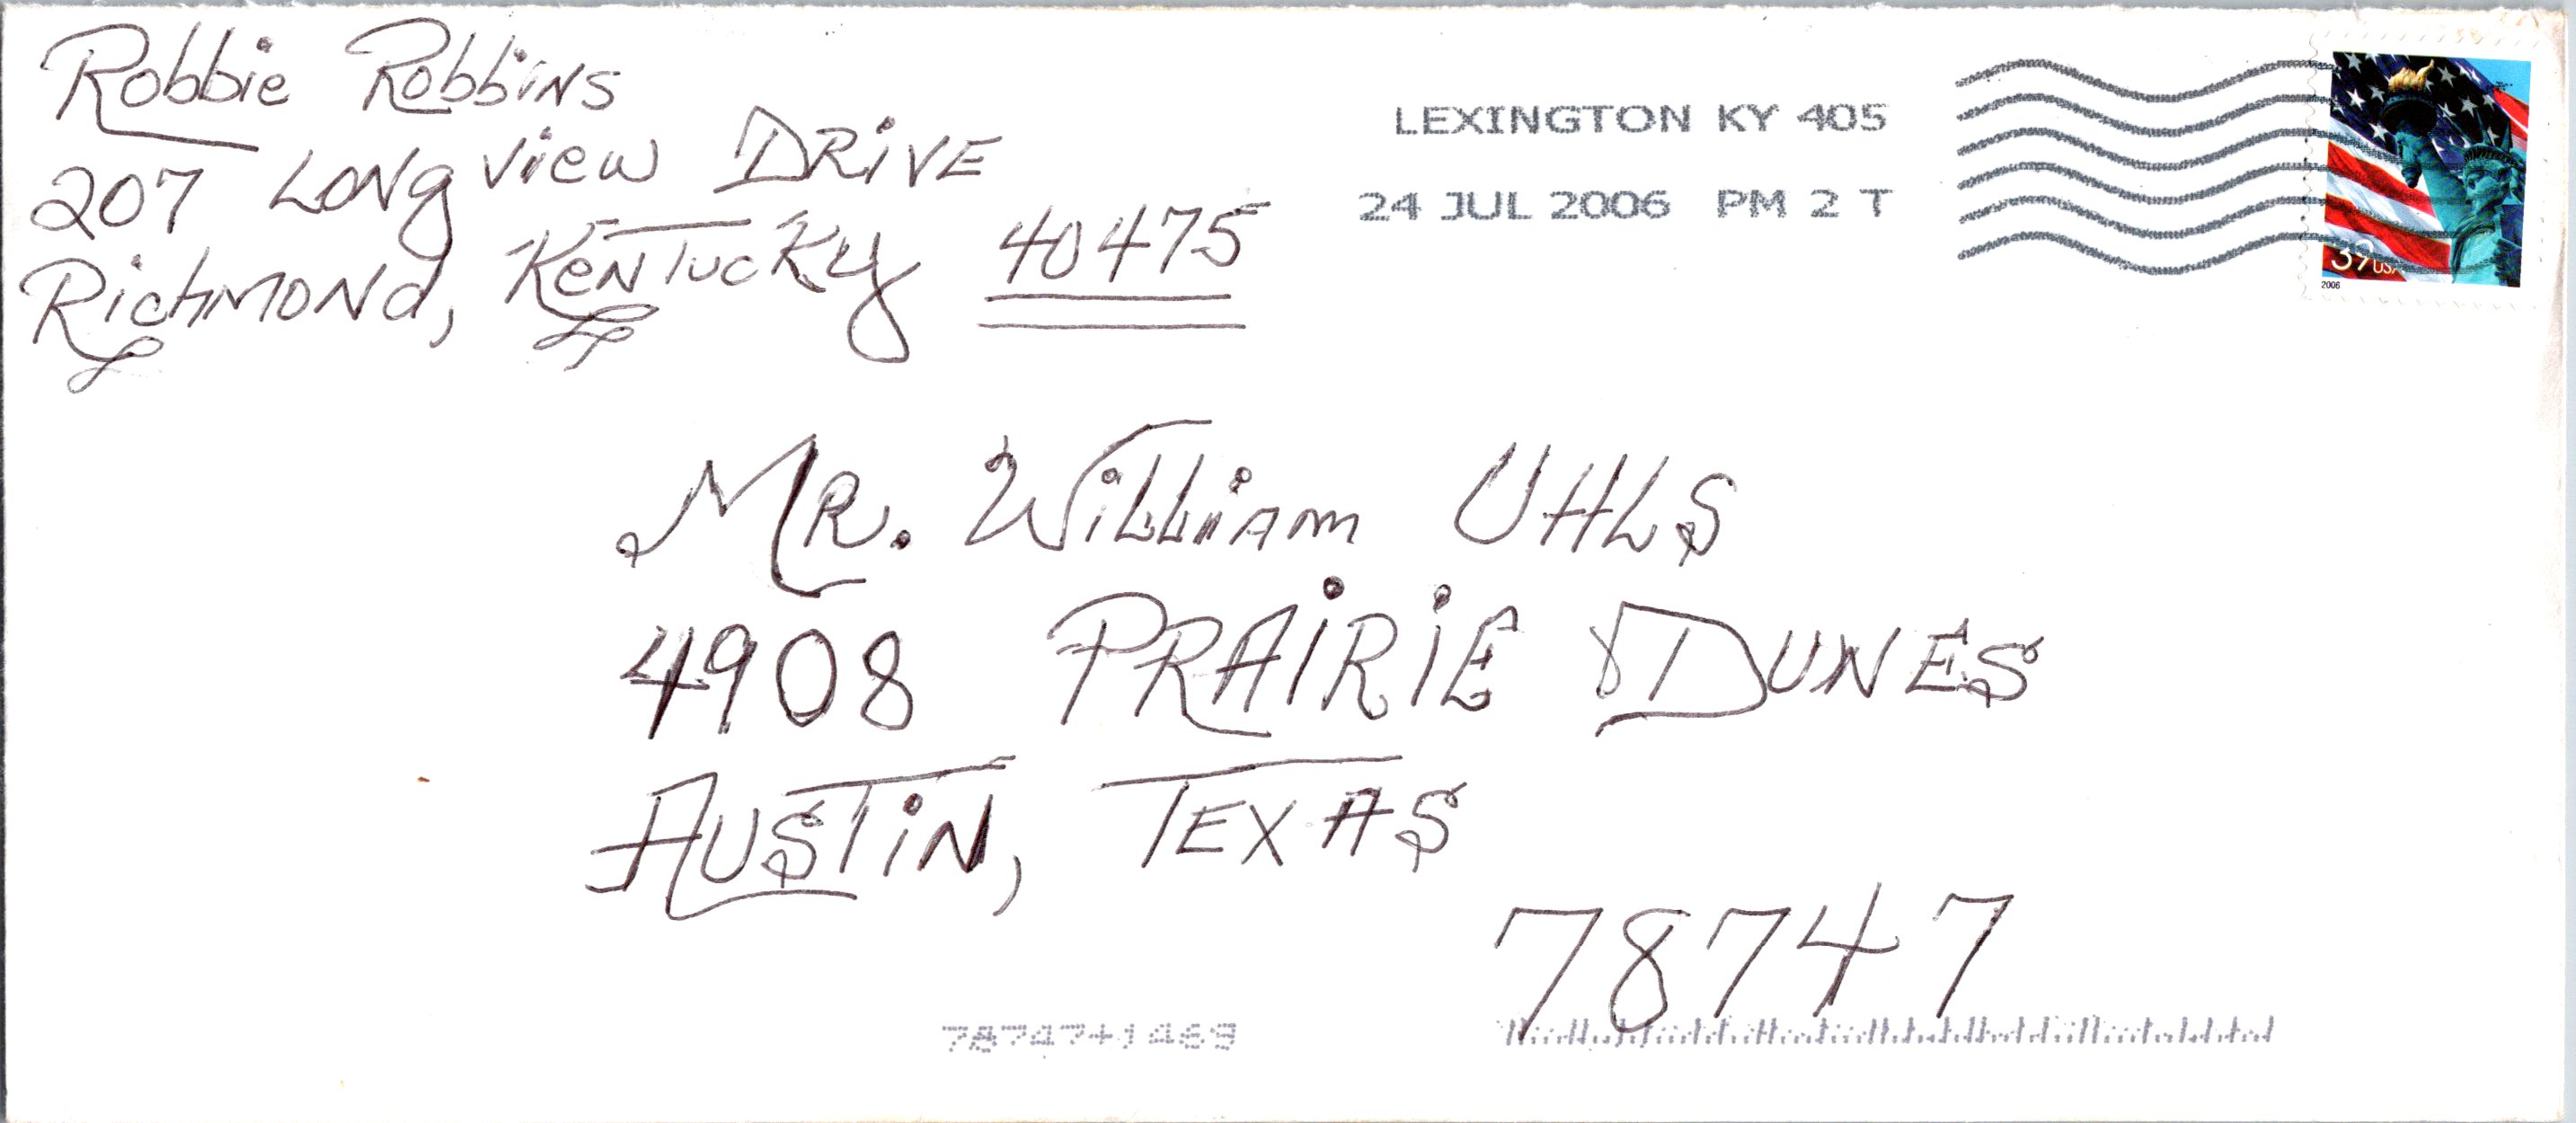 Robbie Robbins
207 Longview Drive
Richmond, Kentucky 40475
LEXINGTON KY 405
24 JUL 2006 PM 2 T
39 USA
2006
MR. William UHLS
4908 PRAIRiE DUNES
AUSTiN, TEXAS
78747
78747+1469